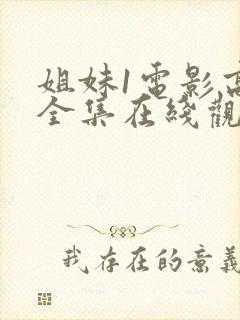 姐妹1电影高
全集在綫觀
我存在的意義